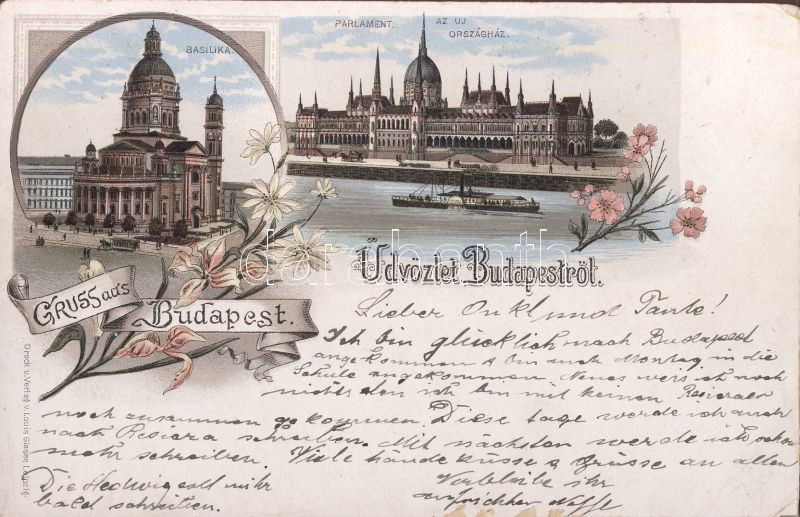 BASILIKA.
PARLAMENT. AZ UJ
ORSZÁGHÁZ.
Üdvözlet Budapestről.
GRUSS aus
Budapest.
Druck u. Verlag v. Louis Glaser, Leipzig.
darabanth
Lieber Onkl und Tante!
Ich bin glücklich nach Budapest
angekommen & bin auch Montag in die
Schule angekommen. Neues weis ich noch
nichts den ich bin mit keinen
noch zusammen gekommen. Diese tage werde ich auch
nach schreiben. Mit nächsten werde ich schon
mehr schreiben. Viele hände küsse & Grüsse an allen
Verbleibe ihr
Neffe
Die Hedwig soll mihr
bald schreiben.